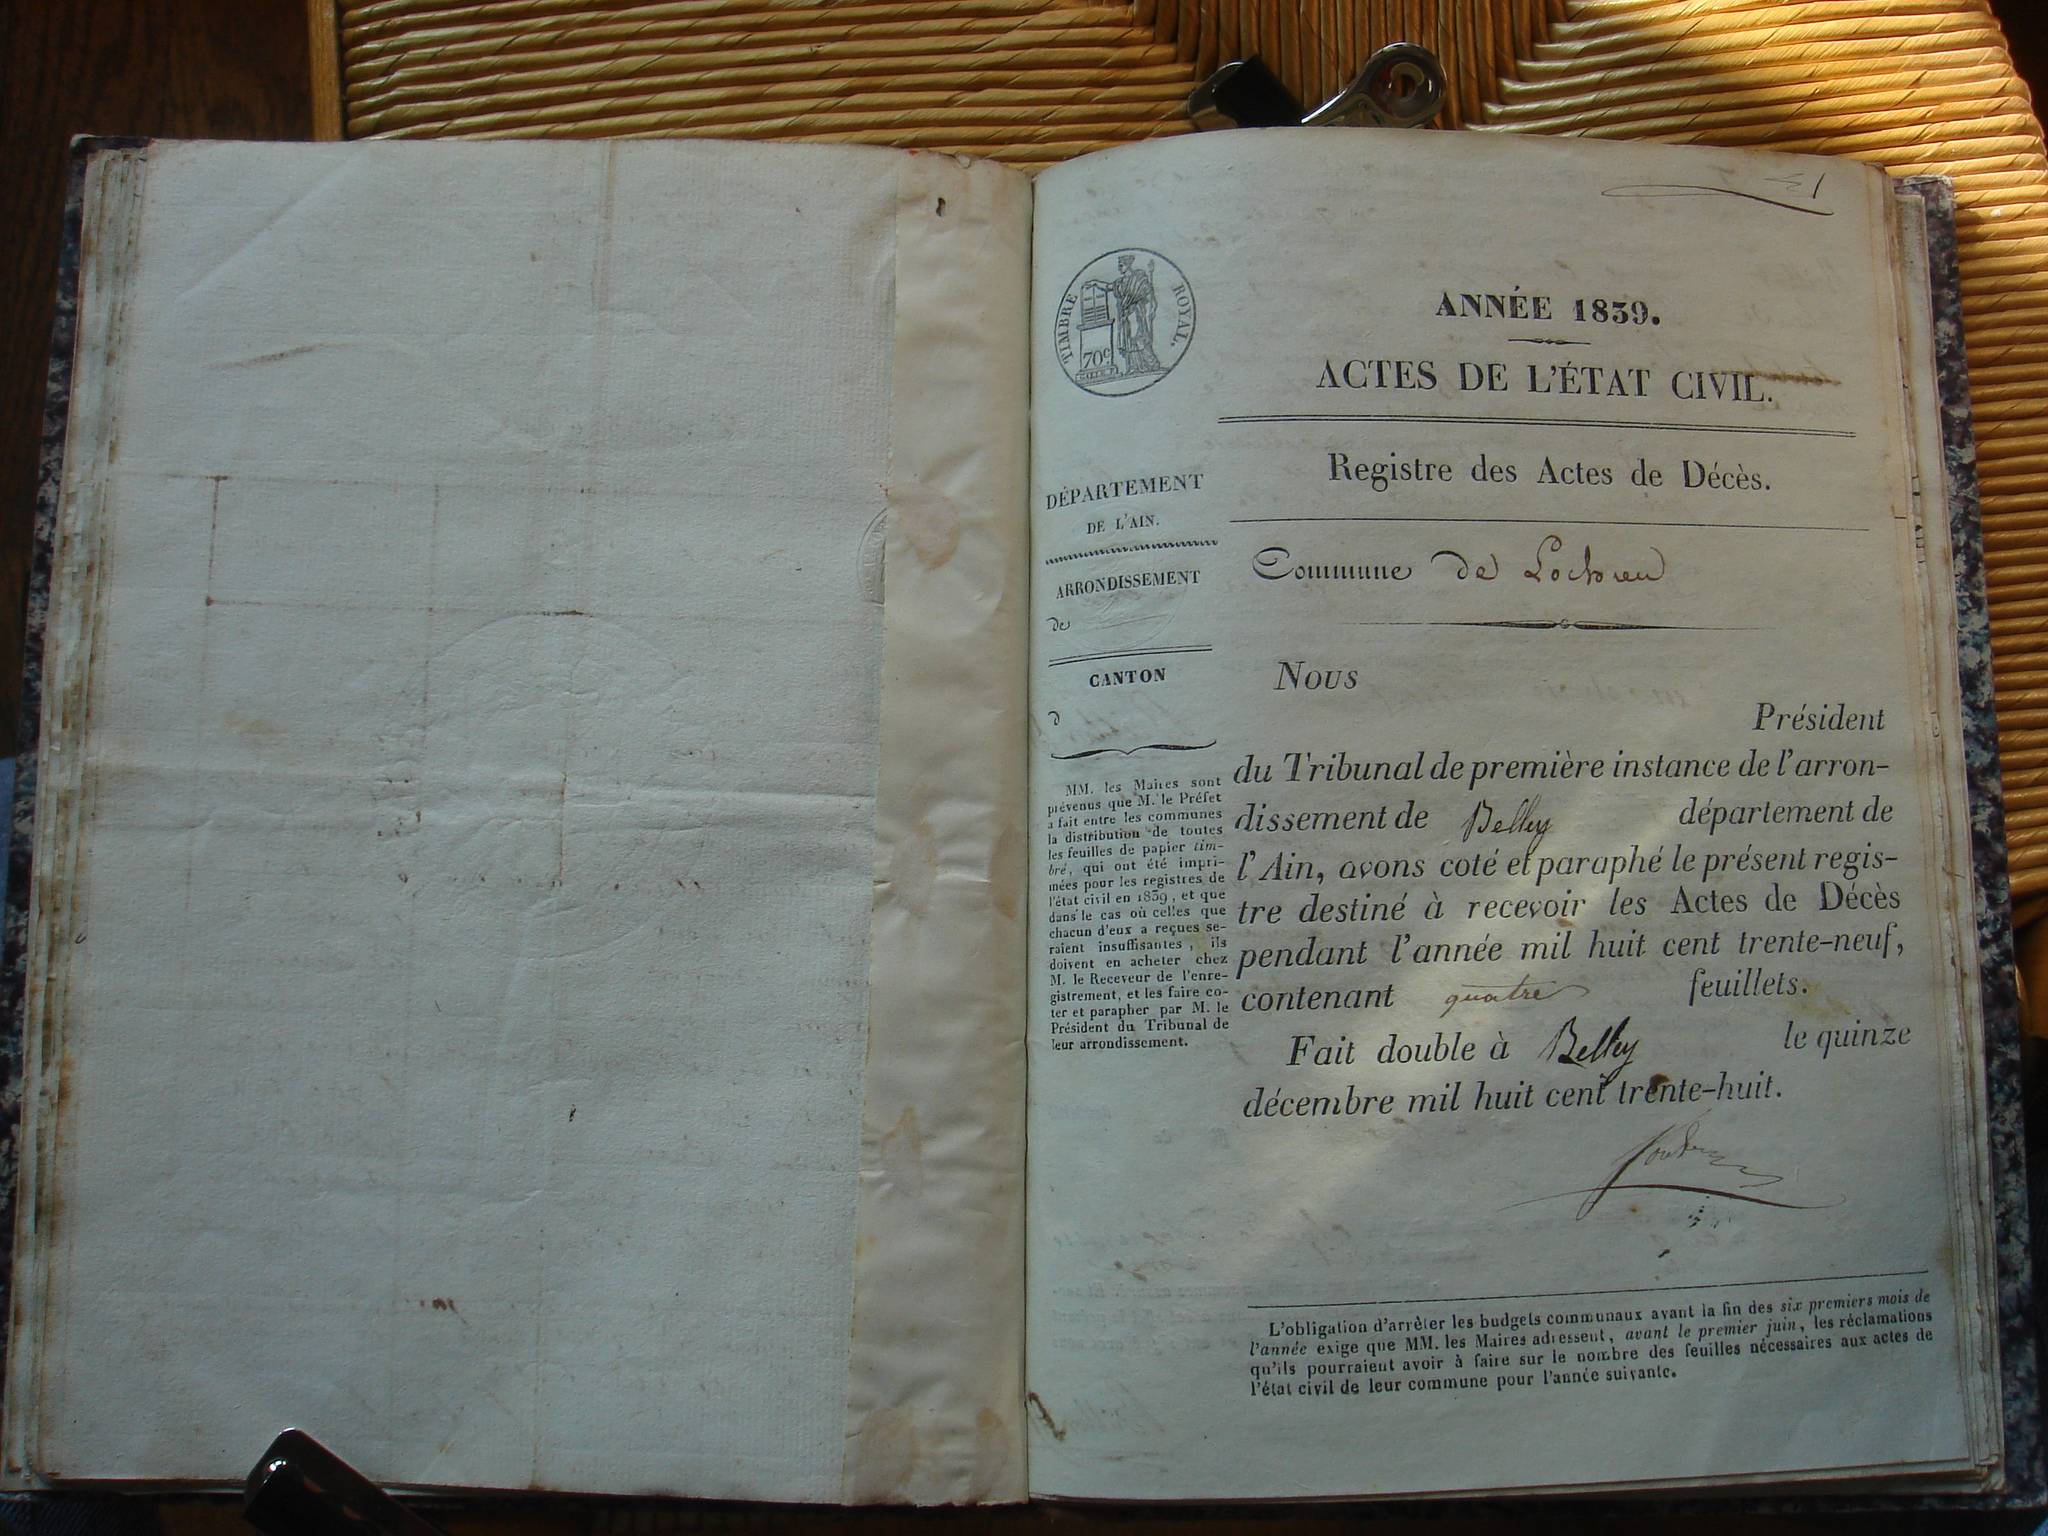 1
TIMBRE ROYAL.
70c
ANNÉE 1839.
ACTES DE L'ÉTAT CIVIL.
Registre des Actes de Décès.
Commune de Lochieu
DÉPARTEMENT
DE L'AIN.
ARRONDISSEMENT
de
CANTON
d
MM. les Maires sont
prévenus que M. le Préfet
a fait entre les communes
la distribution de toutes
les feuilles de papier tim-
bré, qui ont été impri-
mées pour les registres de
l'état civil en 1839, et que
dans le cas où celles que
chacun d'eux a reçues se-
raient insuffisantes, ils
doivent en acheter chez
M. le Receveur de l'enre-
gistrement, et les faire co-
ter et parapher par M. le
Président du Tribunal de
leur arrondissement.
Nous
Président
du Tribunal de première instance de l'arron-
dissement de Belley département de
l'Ain, avons coté et paraphé le présent regis-
tre destiné à recevoir les Actes de Décès
pendant l'année mil huit cent trente-neuf,
contenant quatre feuillets.
Fait double à Belley le quinze
décembre mil huit cent trente-huit.
L'obligation d'arrêter les budgets communaux avant la fin des six premiers mois de
l'année exige que MM. les Maires adressent, avant le premier juin, les réclamations
qu'ils pourraient avoir à faire sur le nombre des feuilles nécessaires aux actes de
l'état civil de leur commune pour l'année suivante.